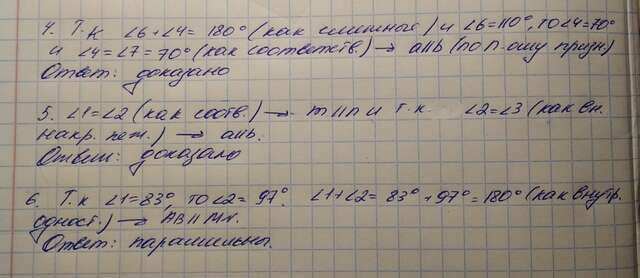 4. Т.к ∠6+∠4=180° (как смежные) и ∠6=110°, то ∠4=70°
и ∠4=∠7=70° (как соответств) → a||b (по п-ому призн)
Ответ: доказано
5. ∠1=∠2 (как соотв.) → m||n и т.к. ∠2=∠3 (как вн.
накр. леж.) → a||b.
Ответ: доказало
6. Т.к ∠1=83°, то ∠2=97°. ∠1+∠2=83°+97°=180° (как внутр.
одност.) → AB||MN.
Ответ: параллельны.